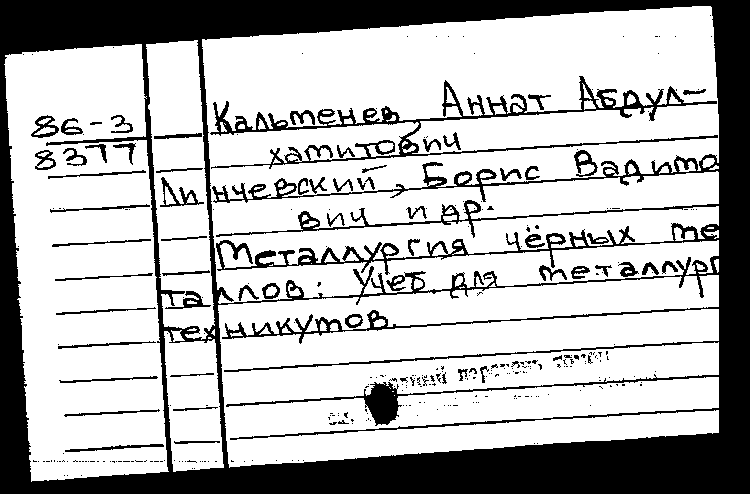 86-3
8377
Кальменев, Аннат Абдул-
хамитович
Линчевский, Борис Вадимо
вич и др.
Металлургия чёрных ме
таллов: Учеб. для металлург
техникумов.
перечень